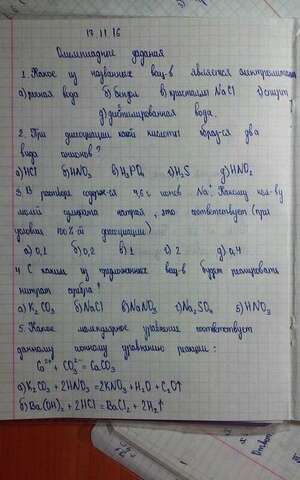 17.11.16
Олимпиадные задания
1. Какое из названных вещ-в является электролитом
а) речная вода б) бензин в) кристаллы NaCl г) спирт
д) дистиллированная вода.
2. При диссоциации какой кислоты образ-ся два
вида анионов?
а) HCl б) HNO₃ в) H₃PO₄ г) H₂S д) HNO₂
3. В растворе содерж-ся 4,6 г ионов Na⁺. Какому кол-ву
молей сульфата натрия, это соответствует (при
условии 100%-й диссоциации)
а) 0,1 б) 0,2 в) 1 г) 2 д) 0,4
4. С каким из предложенных вещ-в будет реагировать
нитрат серебра?
а) K₂CO₃ б) NaCl в) NaNO₃ г) Na₂SO₄ д) HNO₃
5. Какое молекулярное уравнение соответствует
данному ионному уравнению реакции:
Ca²⁺ + CO₃²⁻ = CaCO₃
а) K₂CO₃ + 2HNO₃ = 2KNO₃ + H₂O + CO₂↑
б) Ba(OH)₂ + 2HCl = BaCl₂ + 2H₂↑